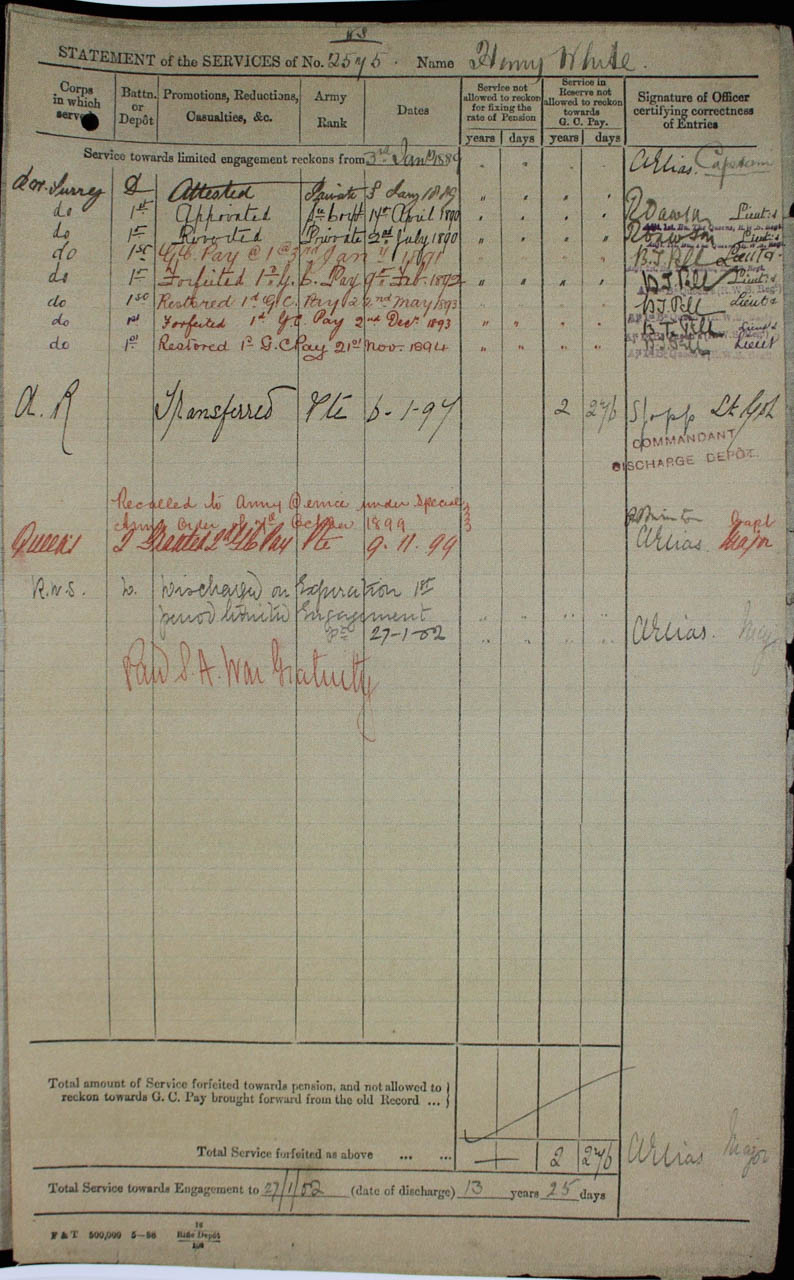 WS
STATEMENT of the SERVICES of No. 2575. Name Henry White.
Corps in which served
Battn. or Depôt
Promotions, Reductions, Casualties, &c.
Army Rank
Dates
Service not allowed to reckon for fixing the rate of Pension
years days
Service in Reserve not allowed to reckon towards G. C. Pay.
years days
Signature of Officer certifying correctness of Entries
Service towards limited engagement reckons from 3rd Jany 1889 " " " " Captain
W. Surrey D Attested Private 3 Jany 1889 " " " "
do 1st Appointed 14th April 1890 " " " " Lieut
do 1st Reverted Private 2nd July 1890 " " " " Lieut
do 1st G.C. Pay @ 1 @ 3rd Jany 1891 Lieut
do 1st Forfeited 1st G. C. Pay 9th Feb. 1892 " " " " Lieut
do 1st Restored 1st G.C. Pay 22nd May 1893 Lieut
do 1st Forfeited 1st G.C Pay 2nd Decr. 1893 " " " " Lieut
do 1st Restored 1st G.C Pay 21st Nov. 1894 " " " " Lieut
A. R Transferred Pte 6-1-97 2 276 Lt Col
COMMANDANT
DISCHARGE DEPÔT.
Recalled to Army Service under Special
Army Order October 1899 Capt
Queens 2 Granted 2d G C Pay Pte 9.11.99 Major
R.W.S. Discharged on Expiration 1st
period limited Engagement " " " "
Pte 27-1-02 " " " "
Paid S.A. War Gratuity
Total amount of Service forfeited towards pension, and not allowed to
reckon towards G. C. Pay brought forward from the old Record ...
Total Service forfeited as above ... ... 2 276 Major
Total Service towards Engagement to 27/1/02 (date of discharge) 13 years 25 days
F & T. 500,000 5—86 Rifle Depôt